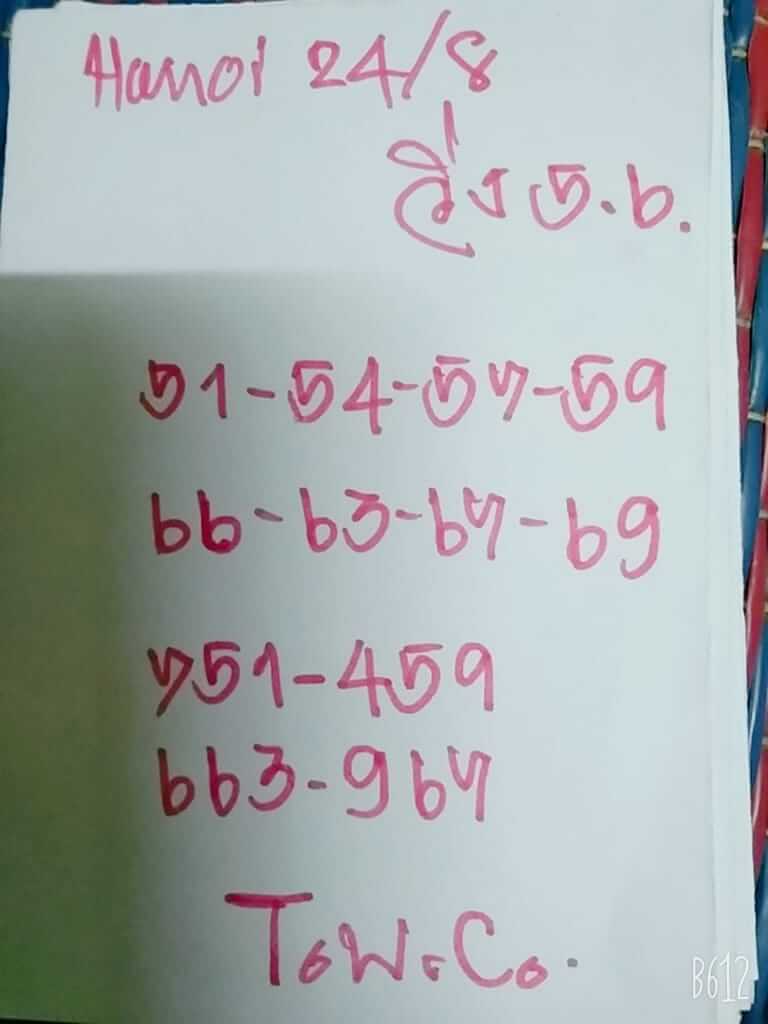 Hanoi 24/8
วิ่ง 5.6.
51-54-57-59
66-63-67-69
751-459
663-967
B612